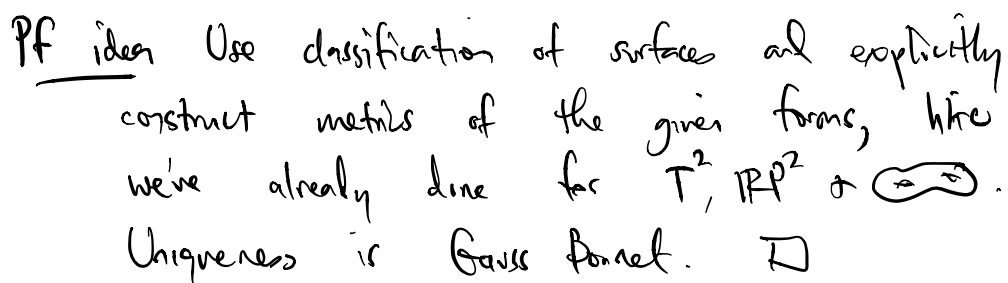 Pf idea Use classification of surfaces and explicitly
construct metrics of the given forms, like
we've already done for T², RP² &
Uniqueness is Gauss Bonnet. □